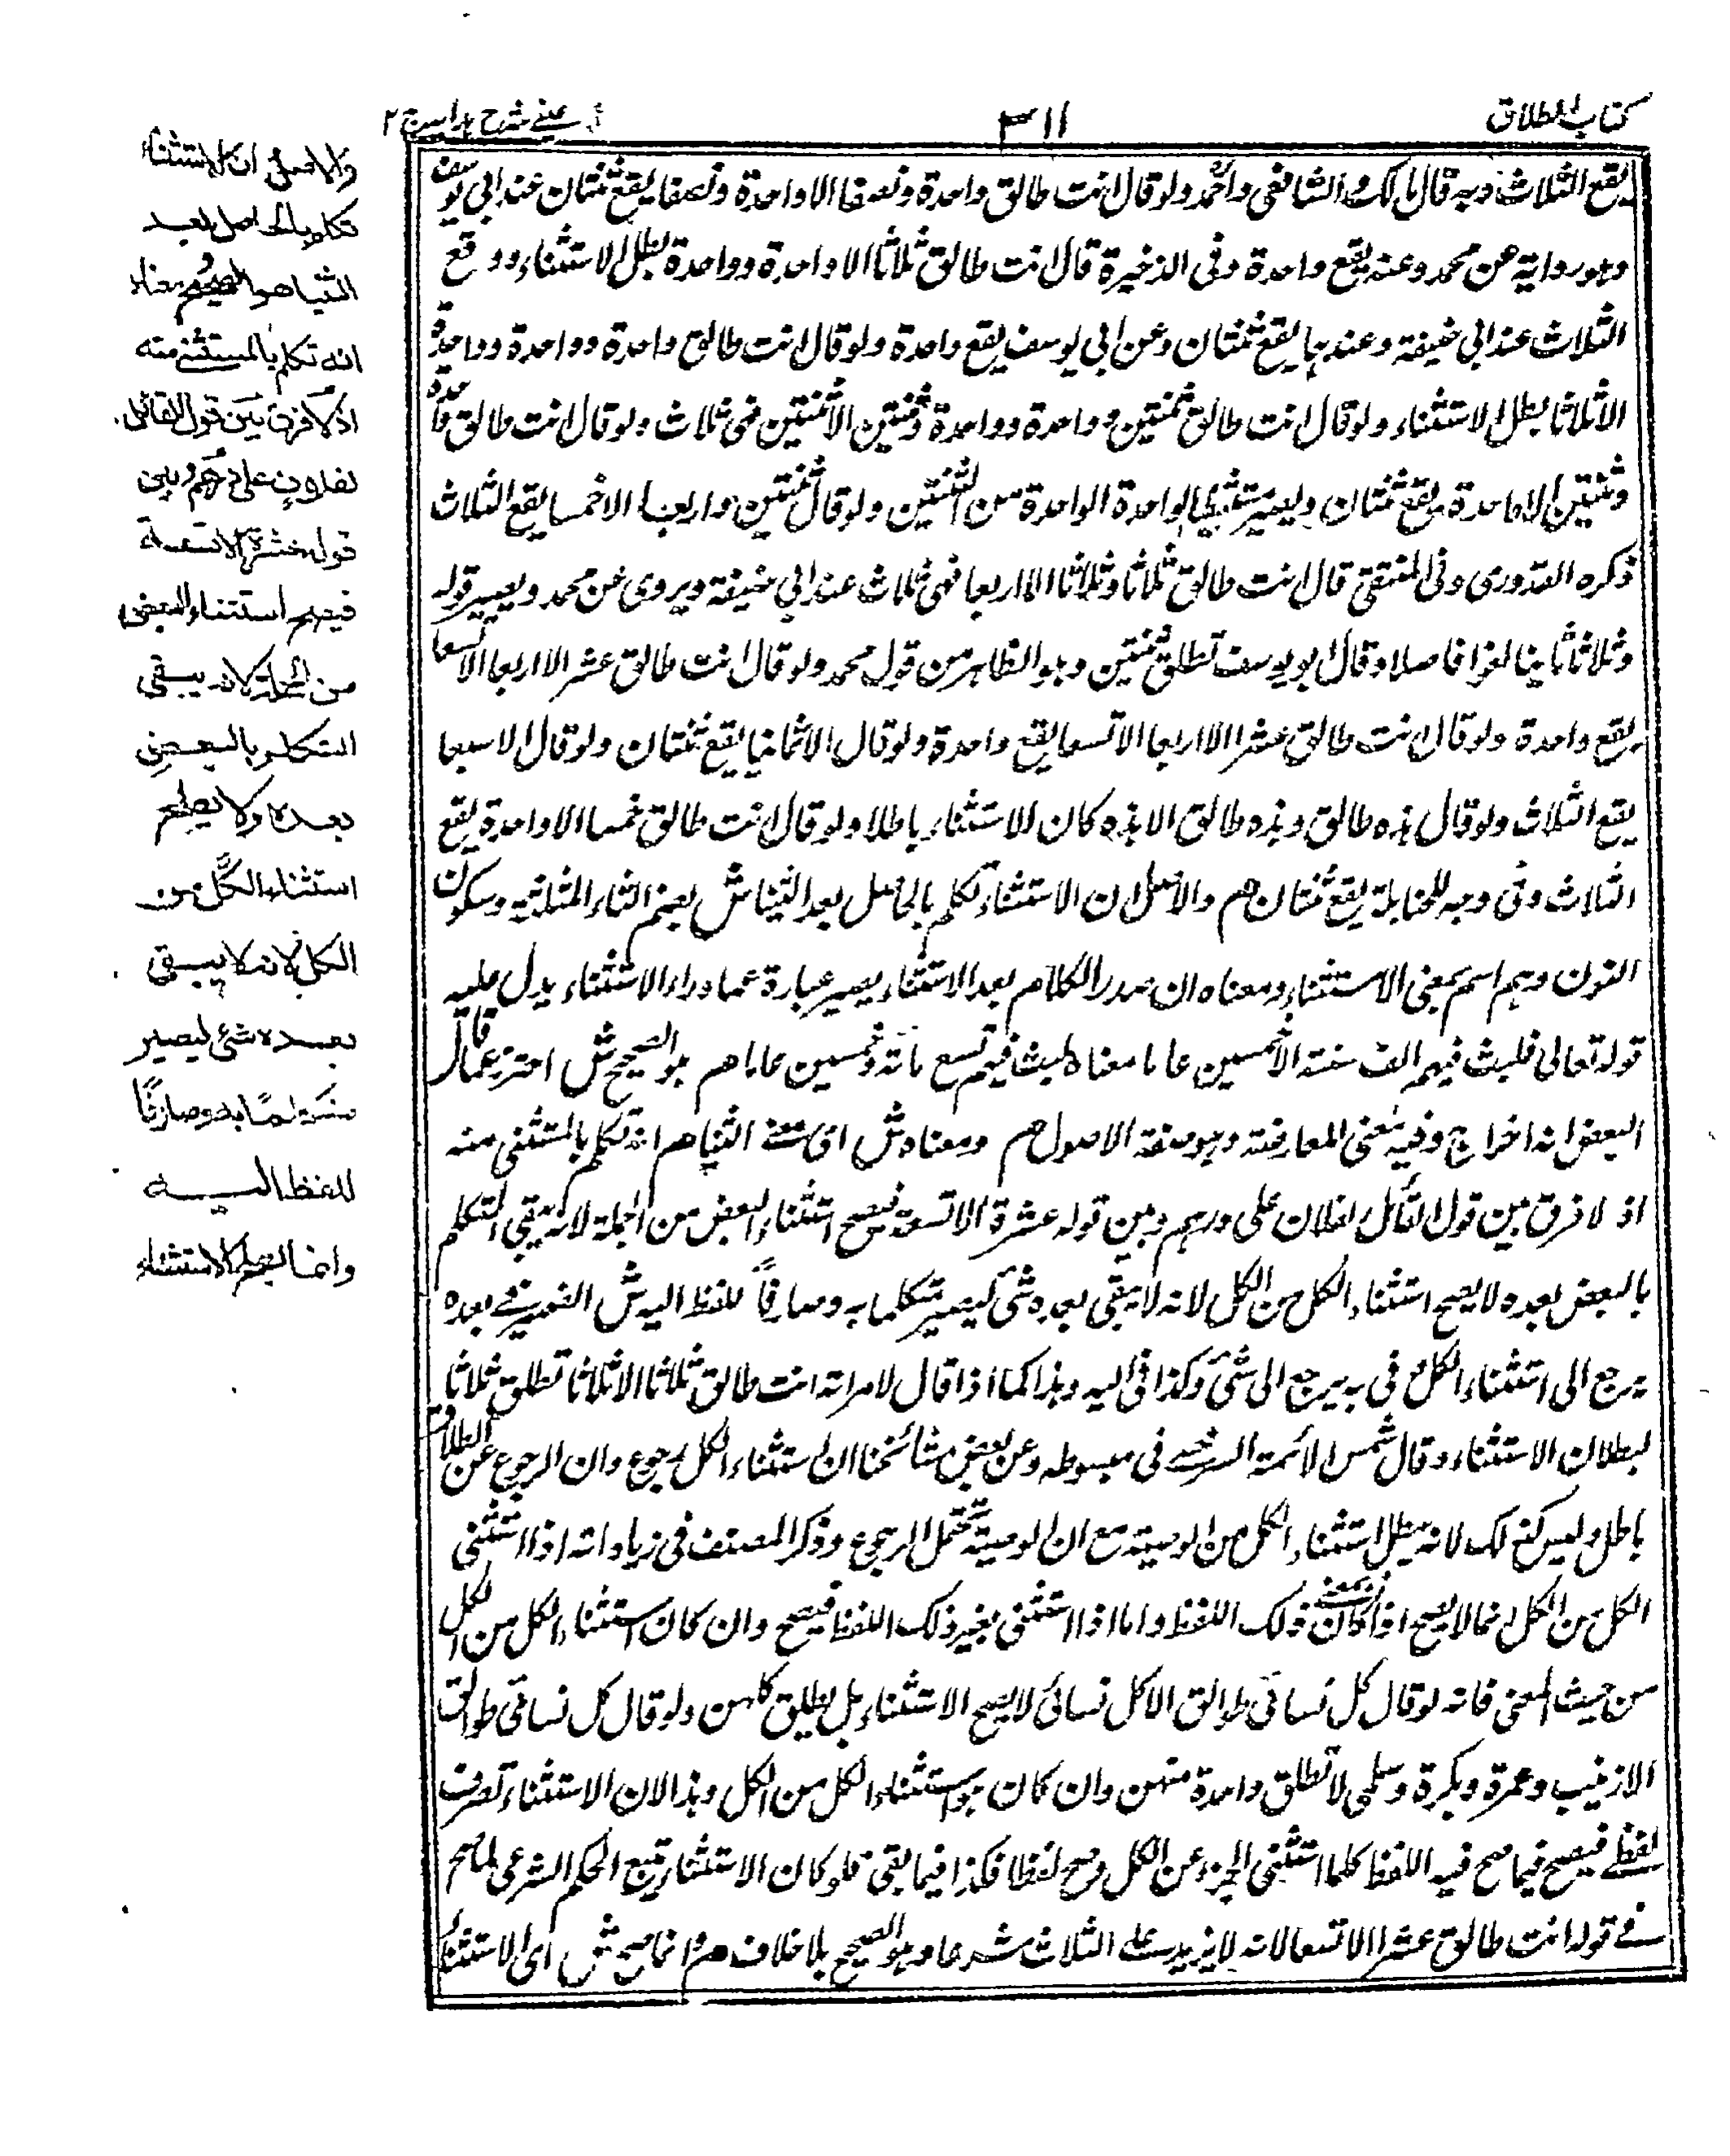 كتاب الطلاق
٣١١
عيني شرح هداية ج ٢
يقع الثلاث وبه قال مالك والشافعي واحمد ولو قال انت طالق واحدة ونصفا الا واحدة ونصفا يقع ثنتان عند ابي يوسف
وهو رواية عن محمد وعنه يقع واحدة وفي الذخيرة قال انت طالق ثلاثا الا واحدة وواحدة بطل الاستثناء ووقع
الثلاث عند ابي حنيفة وعندهما يقع ثنتان وعن ابي يوسف يقع واحدة ولو قال انت طالق واحدة وواحدة وواحدة
الا ثلاثا بطل الاستثناء ولو قال انت طالق ثنتين وواحدة وواحدة وثنتين الا ثنتين فهي ثلاث ولو قال انت طالق واحدة
وثنتين الا واحدة يقع ثنتان ويصير مستثنيا الواحدة من الثنتين ولو قال ثنتين واربعا الا خمسا يقع الثلاث
ذكره القدوري وفي المنتقى قال انت طالق ثلاثا وثلاثا الا اربعا فهي ثلاث عند ابي حنيفة ويروى عن محمد ويصير قوله
وثلاثا ثانيا لغوا فاصلا وقال ابو يوسف تطلق ثنتين وهو الظاهر من قول محمد ولو قال انت طالق عشر الا اربعا الا تسعا
يقع واحدة ولو قال انت طالق عشرا الا اربعا الا تسعا يقع واحدة ولو قال الا ثمانيا يقع ثنتان ولو قال الا سبعا
يقع الثلاث ولو قال هذه طالق وهذه طالق الا هذه كان الاستثناء باطلا ولو قال انت طالق خمسا الا واحدة يقع
الثلاث وفي وجه للحنابلة يقع ثنتان هم والاصل ان الاستثناء تكلم بالحاصل بعد الثنيا ش بضم الثاء المثلثة وسكون
النون وهم اسم بمعنى الاستثناء ومعناه ان صدر الكلام بعد الاستثناء يصير عبارة عما وراء الاستثناء يدل عليه
قوله تعالى فلبث فيهم الف سنة الا خمسين عاما معناه لبث فيهم تسع مائة وخمسين عاما هم هو الصحيح ش احترز عما قال
البعض انه اخراج وفيه معنى المعارضة وموضعه الاصول هم ومعناه ش اى معنى الثنيا هم انه تكلم بالمستثنى منه
اذ لا فرق بين قول القائل لفلان على درهم وبين قوله عشرة الا تسعة فيصح استثناء البعض من الجملة لانه يبقى التكلم
بالبعض بعده لا يصح استثناء الكل من الكل لانه لا يبقى بعده شئ ليصير متكلما به وصارفا للفظ اليه ش الضمير في بعده
يرجع الى استثناء الكل وفي به يرجع الى شئ وكذا في اليه وهذا كما اذا قال لامراته انت طالق ثلاثا الا ثلاثا تطلق ثلاثا
لبطلان الاستثناء وقال شمس الائمة السرخسي في مبسوطه وعن بعض مشائخنا ان استثناء الكل رجوع وان الرجوع عن الطلاق
باطل وليس كذلك لانه يبطل استثناء الكل من الوصية مع ان الوصية تحتمل الرجوع وذكر المصنف في زياداته اذا استثنى
الكل من الكل انما لا يصح اذا كان بعين ذلك اللفظ واما اذا استثنى بغير ذلك اللفظ فيصح وان كان استثناء الكل من الكل
من حيث المعنى فانه لو قال كل نسائي طوالق الا كل نسائي لا يصح الاستثناء بل يطلق كلهن ولو قال كل نسائي طوالق
الا زينب وعمرة وبكرة وسلمى لا تطلق واحدة منهن وان كان هو استثناء الكل من الكل وهذا لان الاستثناء تصرف
لفظي فيصح فيما صح فيه اللفظ كلما استثنى الجزء عن الكل وصح لفظا فكذا فيما بقى فلو كان الاستثناء يتبع الحكم الشرعي لما صح
في قوله انت طالق عشرا الا تسعا لانه لا يزيد على الثلاث شرعا وهو الصحيح بلا خلاف هم وانما يصح ش اى الاستثناء
والاصل ان الاستثناء
تكلم بالحاصل بعد
الثنيا هو الصحيح ومعناه
انه تكلم بالمستثنى منه
اذ لا فرق بين قول القائل
لفلان على درهم وبين
قوله عشرة الا تسعة
فيصح استثناء البعض
من الجملة لانه يبقى
التكلم بالبعض
بعده ولا يصح
استثناء الكل من
الكل لانه لا يبقى
بعده شئ ليصير
متكلما به وصارفًا
للفظ اليه
وانما يصح الاستثناء